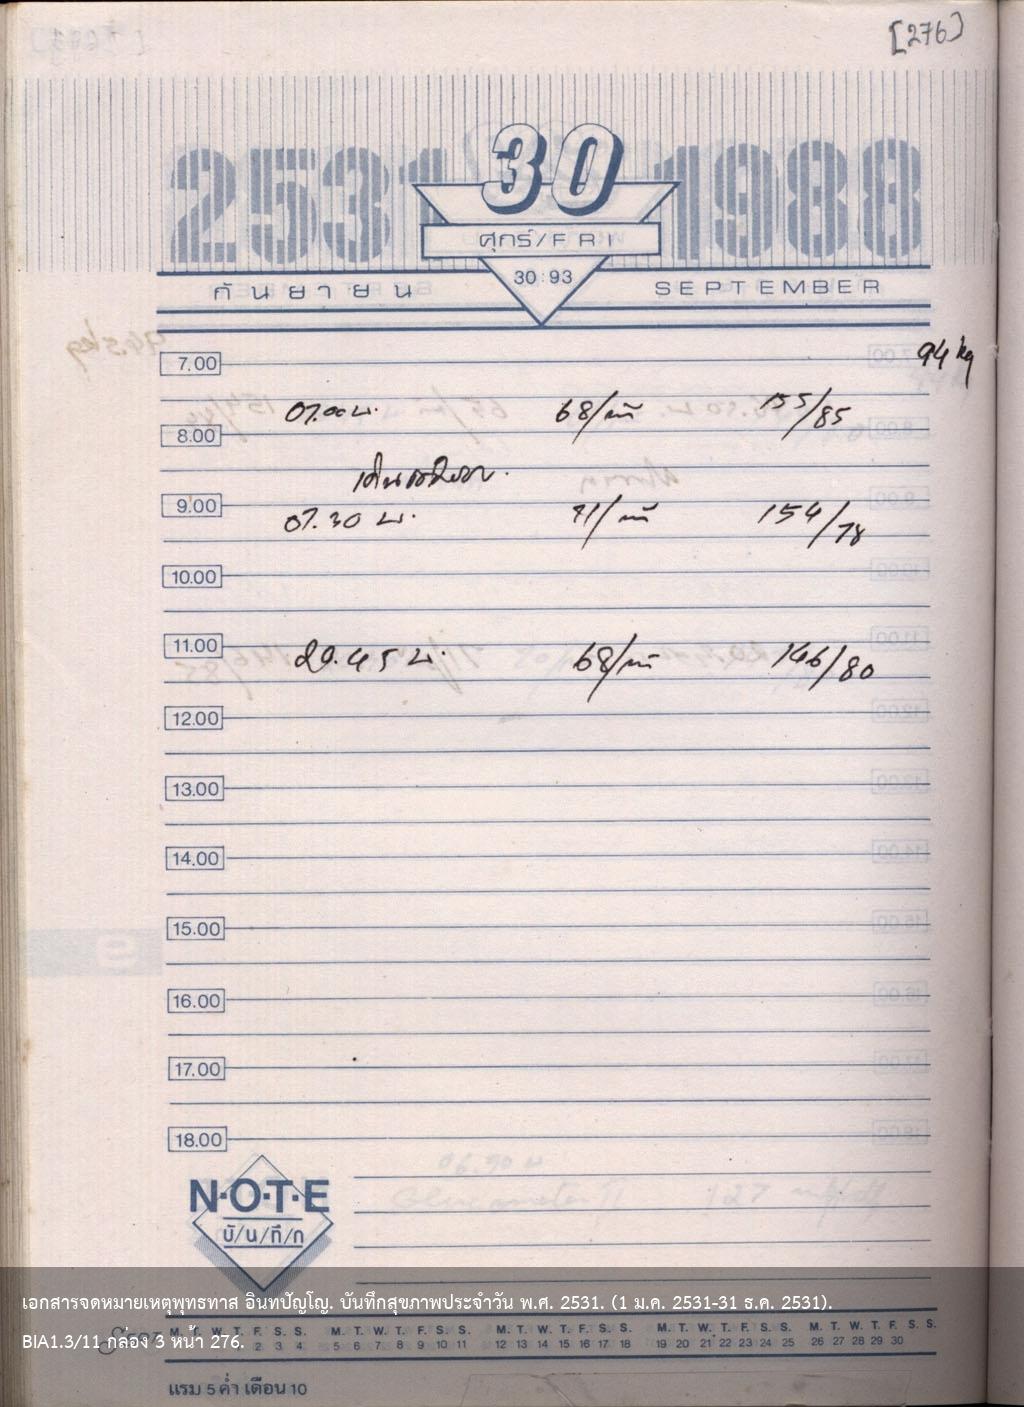 [276]
2531 30 1988
ศุกร์/FRI
30:93
กันยายน SEPTEMBER
94 kg
7.00
07.00 น. 68/นาที 155/85
8.00
9.00
07.30 น. 71/นาที 154/78
10.00
11.00
20.45 น. 68/นาที 146/80
12.00
13.00
14.00
15.00
16.00
17.00
18.00
N·O·T·E
บั/น/ทึ/ก
เอกสารจดหมายเหตุพุทธทาส อินทปัญโญ. บันทึกสุขภาพประจำวัน พ.ศ. 2531. (1 ม.ค. 2531-31 ธ.ค. 2531).
M. T. W. T. F. S. S. M. T. W. T. F. S. S. M. T. W. T. F. S. S. M. T. W. T. F. S. S. M. T. W. T. F. S. S.
BIA1.3/11 กล่อง 3 หน้า 276.
2 3 4 5 6 7 8 9 10 11 12 13 14 15 16 17 18 19 20 21 22 23 24 25 26 27 28 29 30
แรม 5 ค่ำ เดือน 10